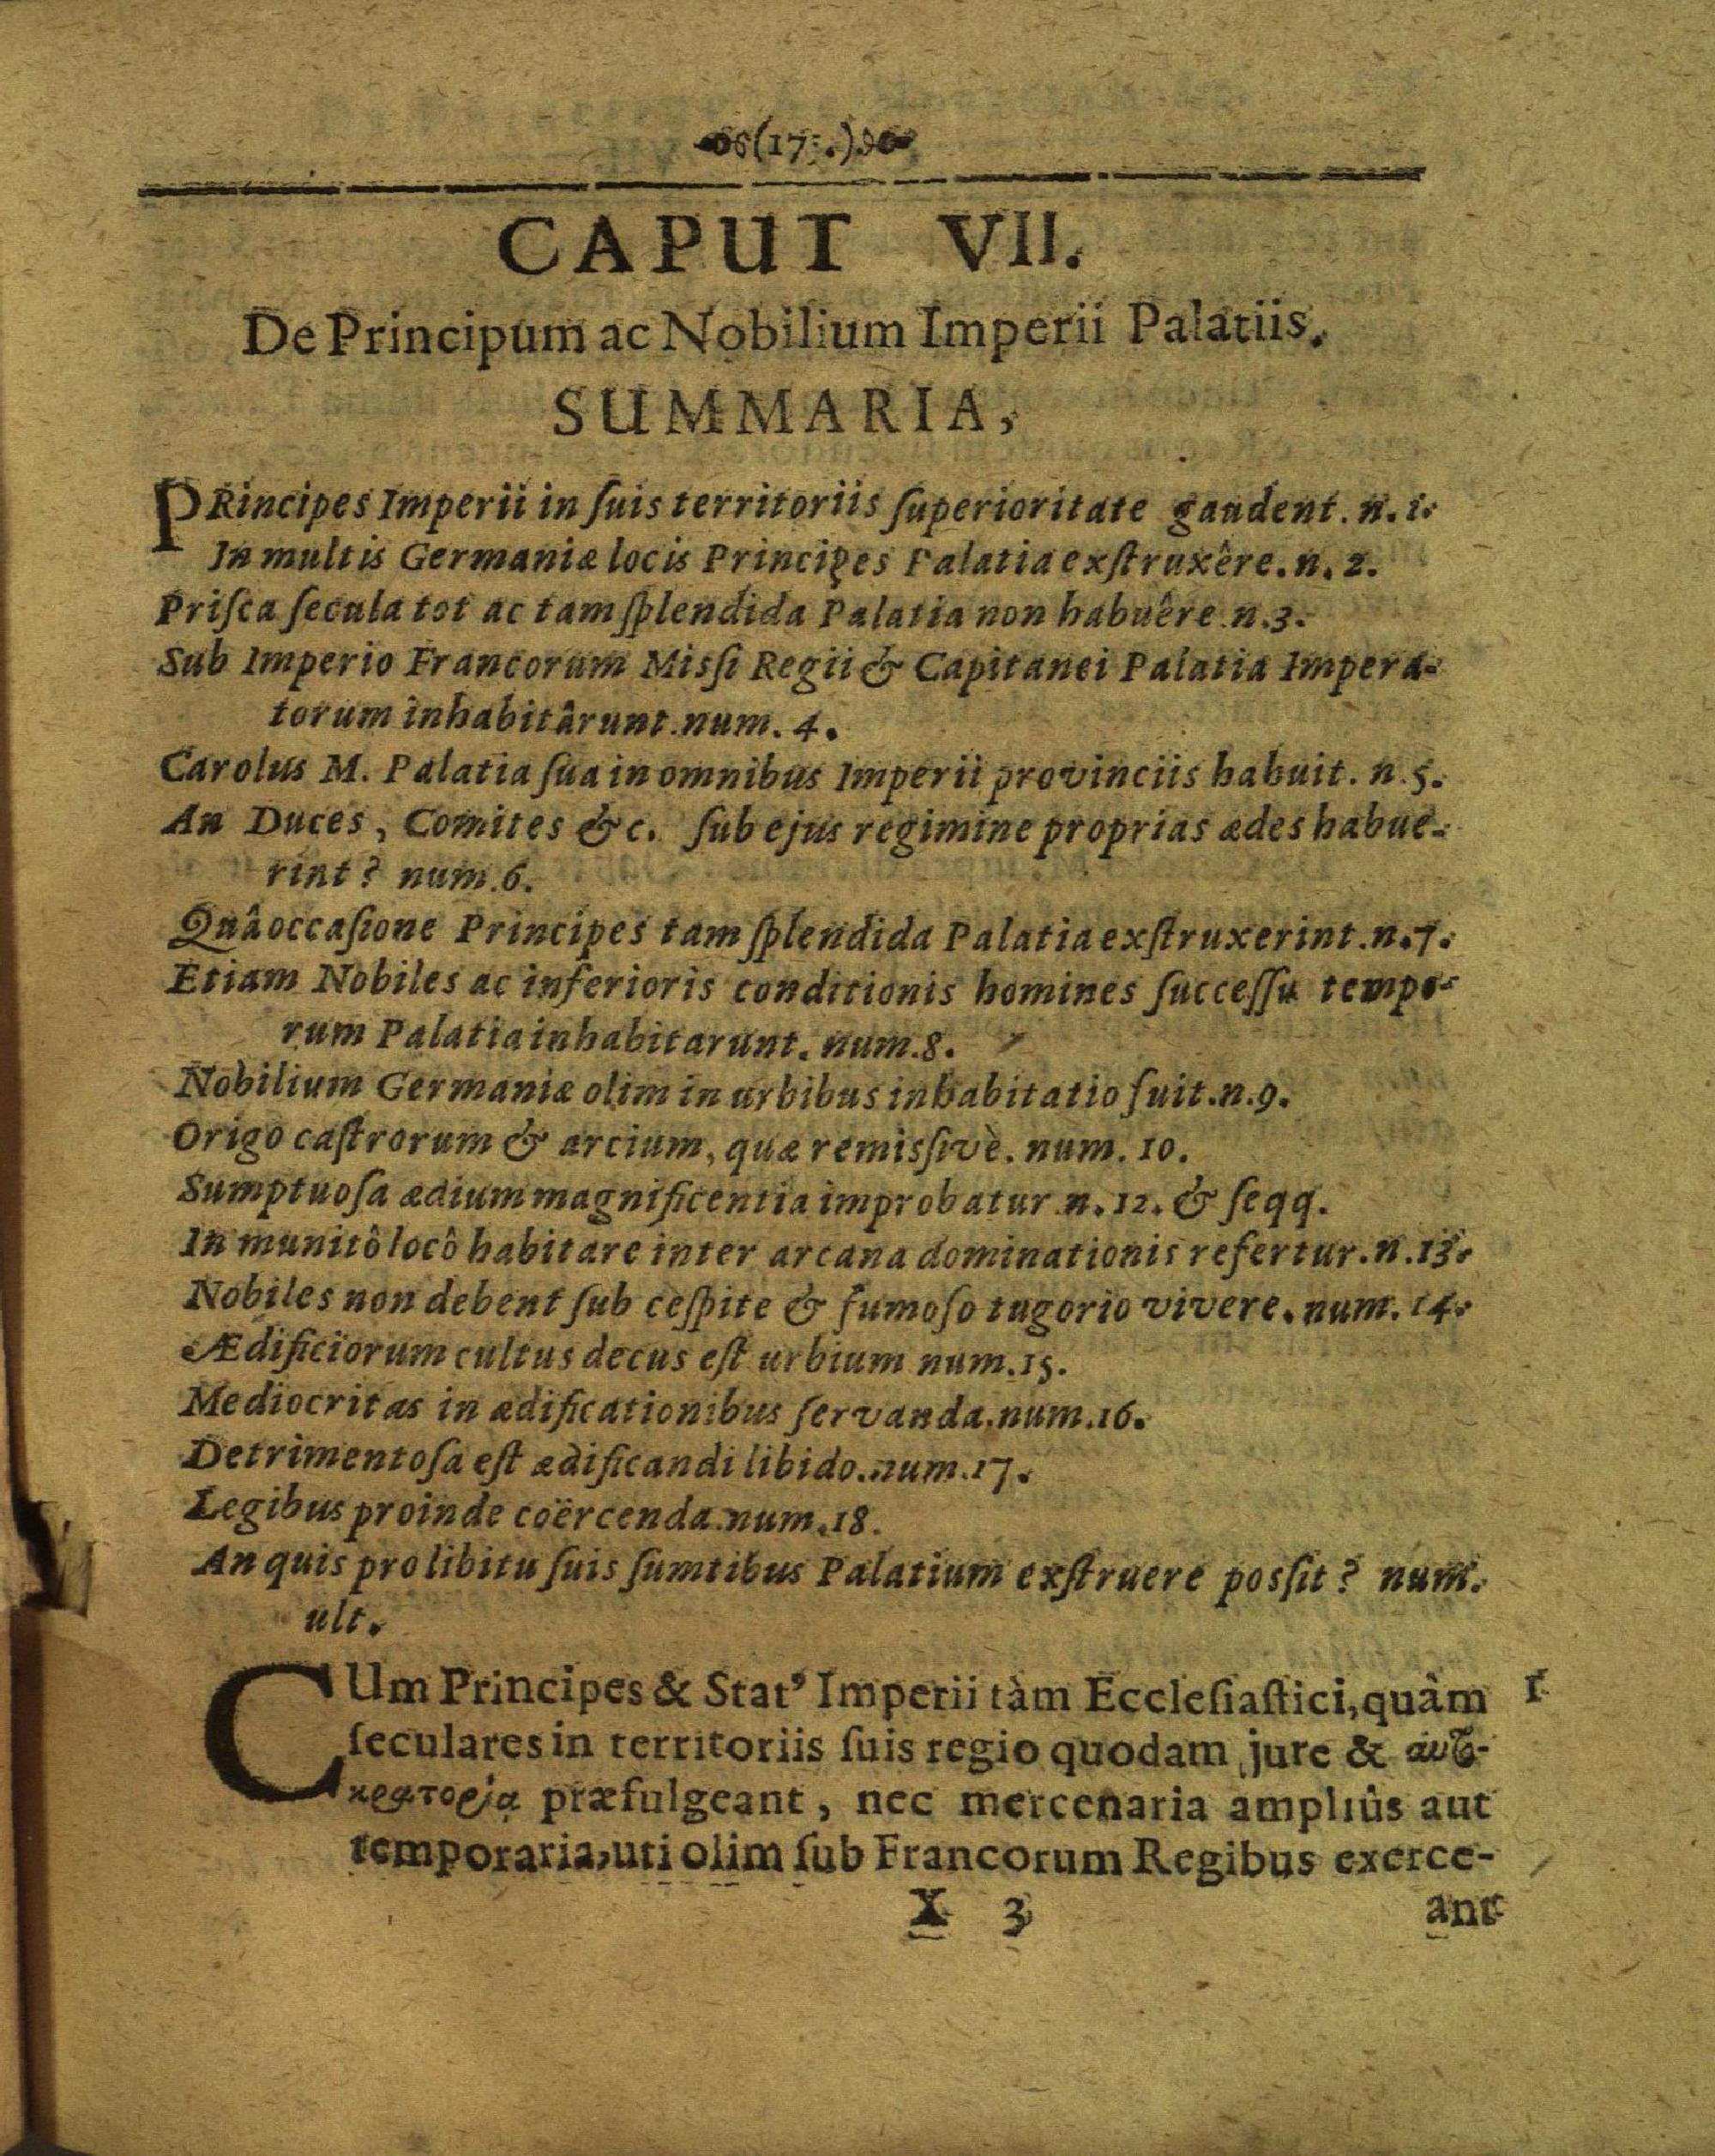 CAPUT VII.
De Principum ac Nobilium Imperii Palatiis.
SUMMARIA,
PRincipes Imperii in ſuis territoriis ſuperioritate gaudent. n. 1.
In multis Germaniæ locis Principes Palatia exſtruxêre. n. 2.
Priſca ſecula tot ac tam ſplendida Palatia non habuêre. n. 3.
Sub Imperio Francorum Misſi Regii & Capitanei Palatia Impera-
torum inhabitârunt. num. 4.
Carolus M. Palatia ſua in omnibus Imperii provinciis habuit. n. 5.
An Duces, Comites &c. ſub ejus regimine proprias ædes habue-
rint? num. 6.
Quâ occaſione Principes tam ſplendida Palatia exſtruxerint. n. 7.
Etiam Nobiles ac inferioris conditionis homines ſucceſſu tempo-
rum Palatia inhabitarunt. num. 8.
Nobilium Germaniæ olim in urbibus inhabitatio fuit. n. 9.
Origo caſtrorum & arcium, quæ remisſivè. num. 10.
Sumptuoſa ædium magnificentia improbatur. n. 12. & ſeqq.
In munitô locô habitare inter arcana dominationis refertur. n. 13.
Nobiles non debent ſub ceſpite & fumoſo tugorio vivere. num. 14.
Ædificiorum cultus decus eſt urbium num. 15.
Mediocritas in ædificationibus ſervanda. num. 16.
Detrimentoſa eſt ædificandi libido. num. 17.
Legibus proinde coërcenda. num. 18.
An quis pro libitu ſuis ſumtibus Palatium exſtruere posſit? num.
ult.
CUm Principes & Stat' Imperii tàm Eccleſiaſtici, quàm 1
ſeculares in territoriis ſuis regio quodam jure & αὐτο-
κρατορίᾳ præfulgeant, nec mercenaria ampliùs aut
temporaria, uti olim ſub Francorum Regibus exerce-
X 3 ant